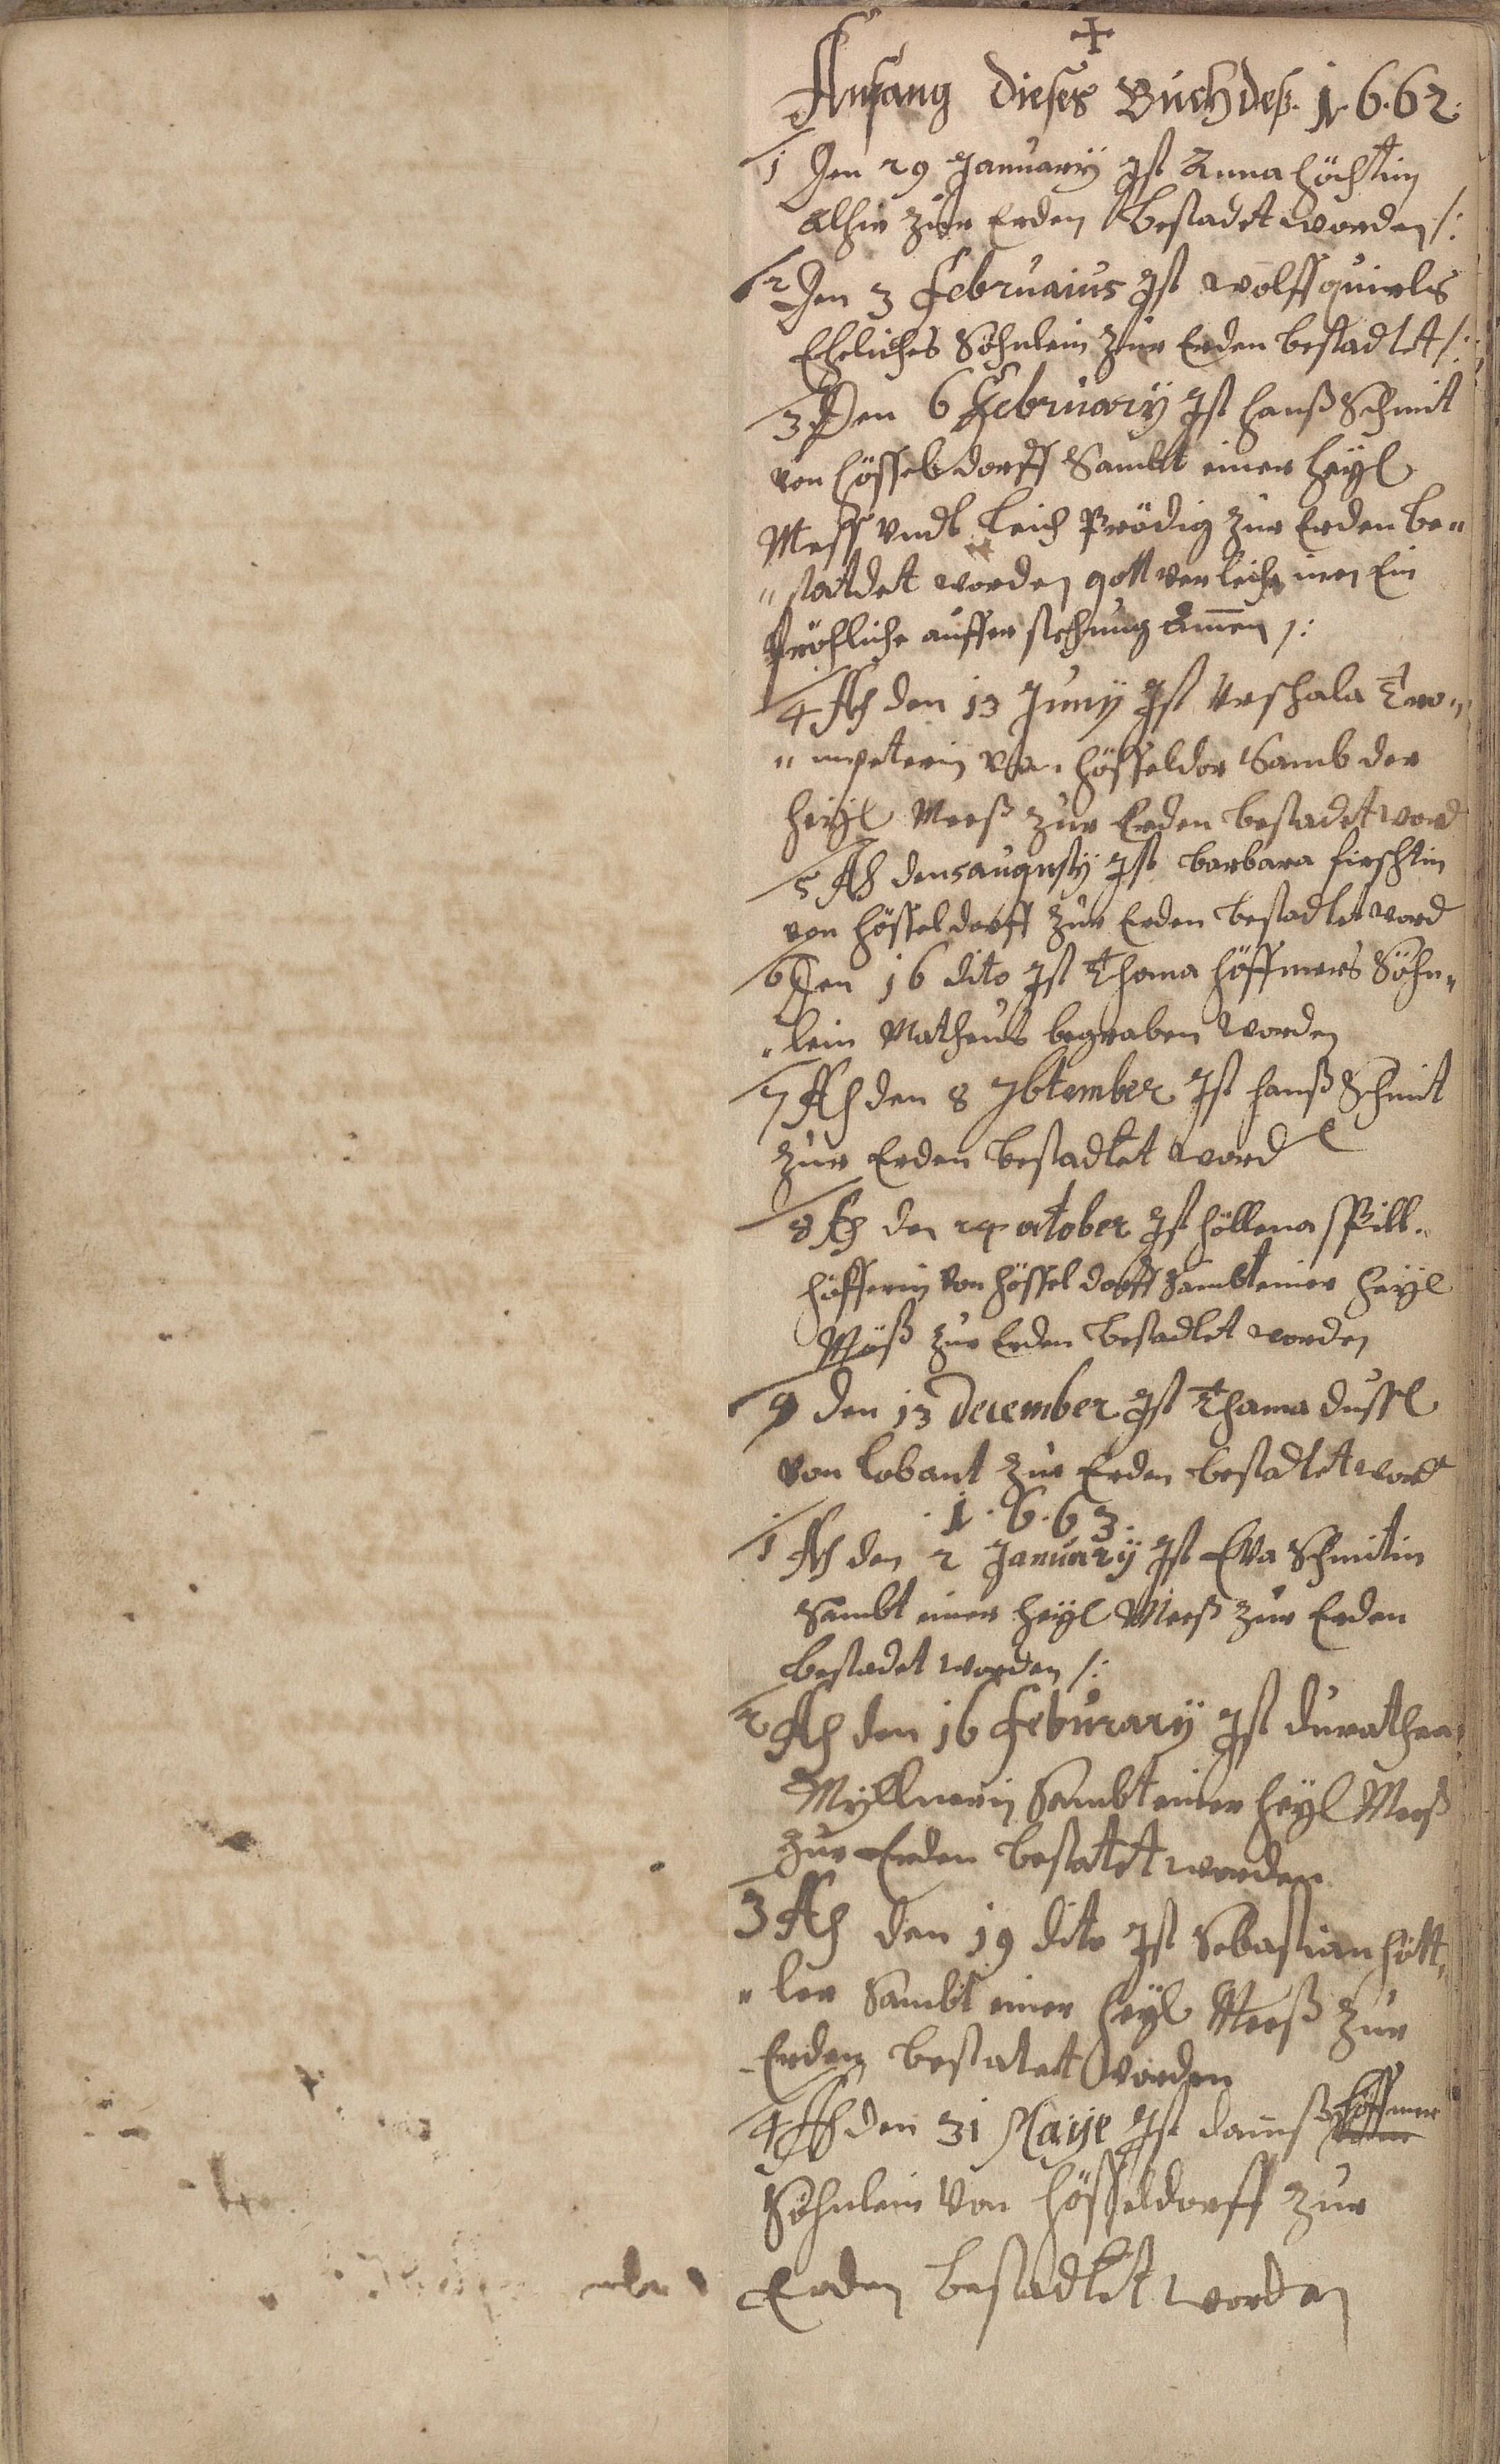 +
Anfang dieses Buch deß. 1.6.62.
1 Den 29 January Ist Anna Höchtin
Alhir zur Erden bestadet worden /:
2 Den 3 Februaius Ist Wolff quirls
Eheliches Söhnlein zur Erden bestadtet /:
3 Den 6 February Ist Hanß Schmit
von Hösseldorff Sambt einer Heyl
Mess vndt Leich Prödig zur Erden be„
„statdet worden gott verleihe inen Ein
fröhliche aufferstehung Amen /:
4 Ah den 13 Juny Ist Vrschala Tro„
„mpeterin von Hösseldor Samb der
Heyl Meeß zur Erden bestadet word
5 Ah den 5 augusty Ist barbara firschtin
von Hösseldorff zur Erden bestadtet word
6 Den 16 dito Ist Thoma Höffmers Söhn„
„lein Matheus begraben worden
7 Ah den 8 7btember Ist Hanß Schmit
zur Erden bestadtet word
8 Ah den 24 october Ist Höllena Spill„
höfferin von Hösseldorff Sambt einer Heyl
Möß zur Erden bestadtet worden
9 den 13 December Ist Thama dussl
von lobant zur Erden bestadtet word
.1.6.63.
1 Ah den 2 January Ist Eva Schmitin
Sambt einer Heyl Meeß zur Erden
bestadet worden /:
2 Ah den 16 Feburary Ist durathea
Myllnerin Sambt einer Heyl Meeß
zur Erden bestatet worden
3 Ah den 19 dito Ist Sebastian Hött„
„ler Sambt einer Heyl Meeß zur
Erden bestatet worden
4 Ah den 31 Maije Ist Höffmer
Söhnlein von Hösseldorff zur
Erden bestadtet worden